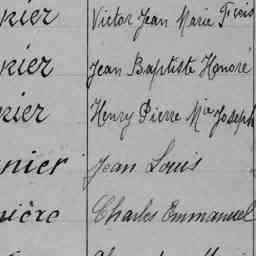 nier Victor Jean Marie Frois
nier Jean Baptiste Honoré
nier Henry Pierre Mie Joseph
nier Jean Louis
nière Charles Emmanuel